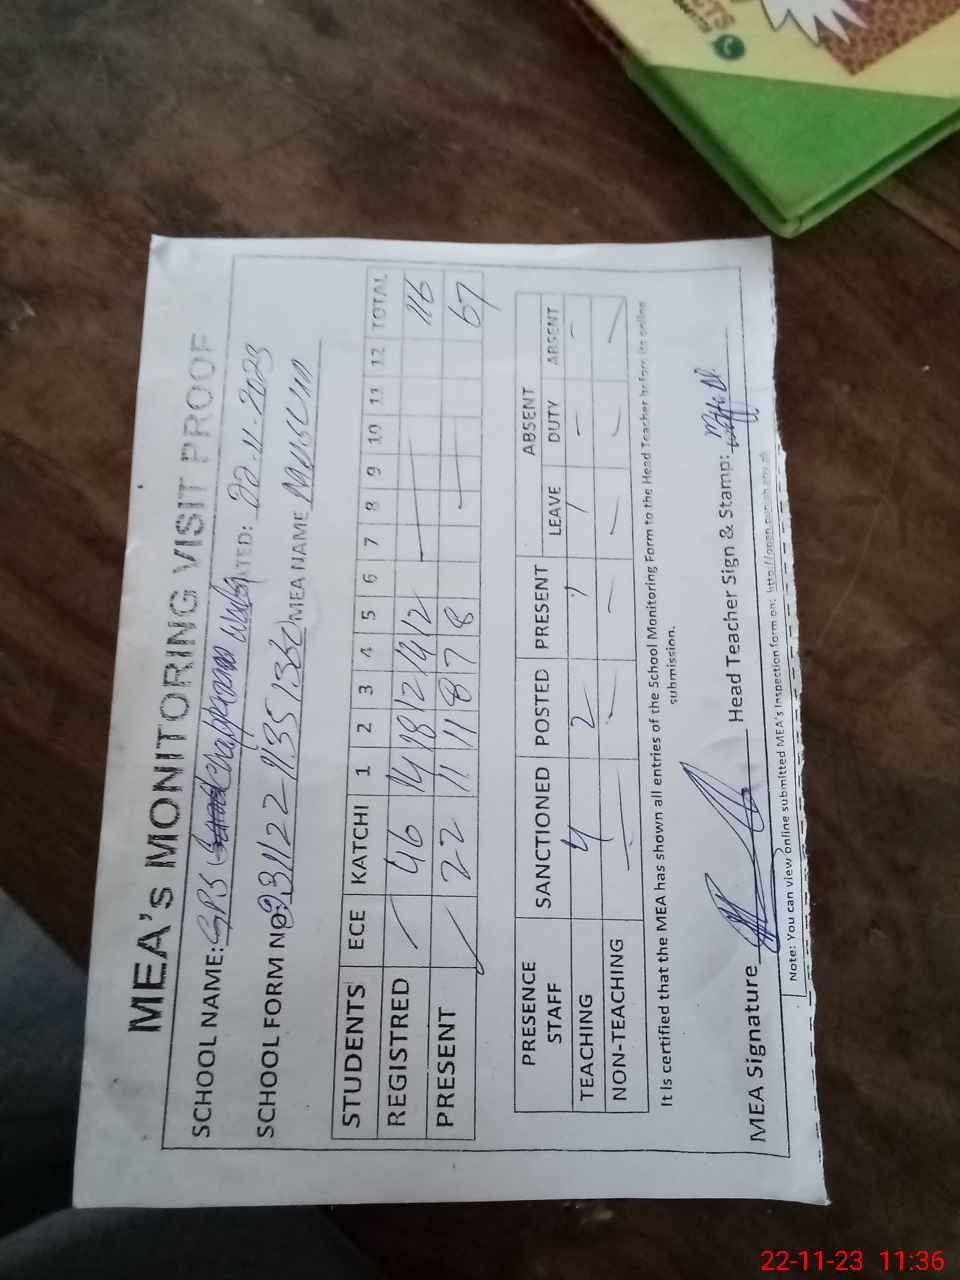 MEA's MONITORING VISIT PROOF
SCHOOL NAME: GPS DATED: 22-11-2023
SCHOOL FORM NO: MEA NAME
STUDENTS ECE KATCHI 1 2 3 4 5 6 7 8 9 10 11 12 TOTAL
REGISTRED 46 14 18 12 14 12 116
PRESENT 22 11 11 8 7 8 67
PRESENCE STAFF SANCTIONED POSTED PRESENT ABSENT
LEAVE DUTY ABSENT
TEACHING 4 2 1 1 - -
NON-TEACHING
It is certified that the MEA has shown all entries of the School Monitoring Form to the Head Teacher before its online
submission.
MEA Signature Head Teacher Sign & Stamp:
Note: You can view online submitted MEA's Inspection form on: http://open.punjab.gov.pk
CTS
22-11-23 11:36